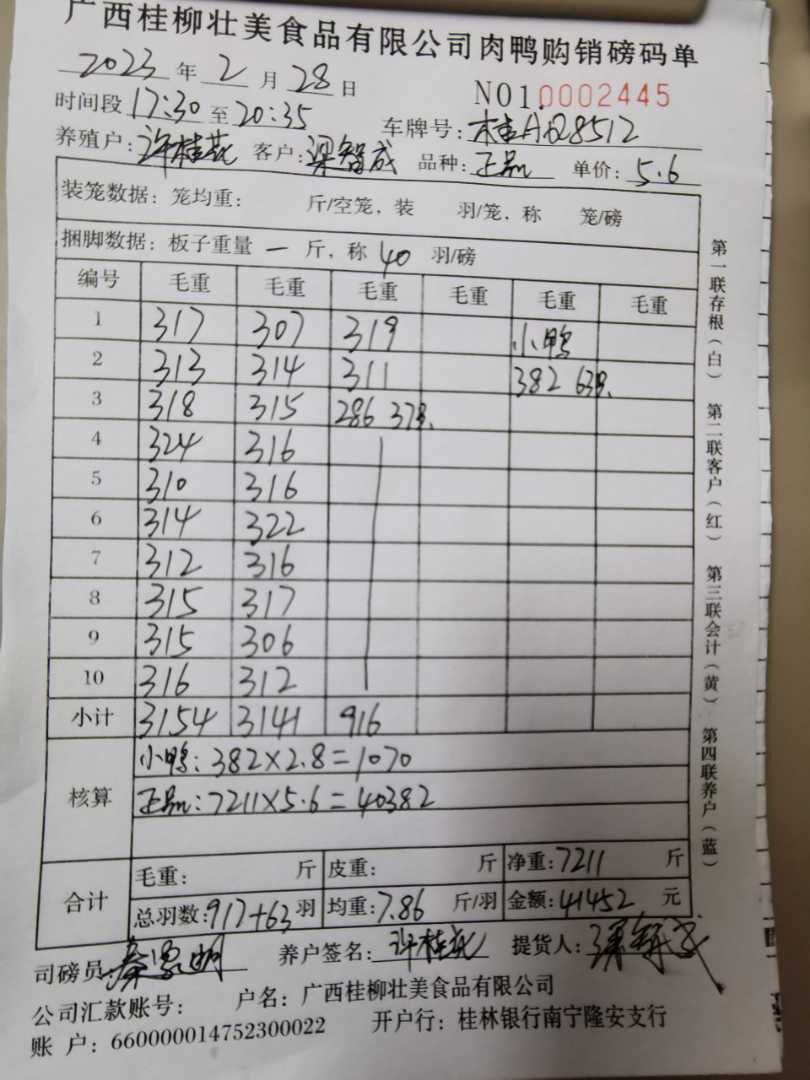 广西桂柳壮美食品有限公司肉鸭购销磅码单
2023 年 2 月 28 日 NO10002445
时间段 17:30 至 20:35 车牌号: 桂A028512
养殖户: 许桂花 客户: 梁智成 品种: 正品 单价: 5.6
装笼数据: 笼均重: 斤/空笼, 装 羽/笼, 称 笼/磅
捆脚数据: 板子重量 一 斤, 称 40 羽/磅
编号 毛重 毛重 毛重 毛重 毛重 毛重
1 317 307 319 小鸭
2 313 314 311 382 63羽.
3 318 315 286 37羽.
4 324 316
5 310 316
6 314 322
7 312 316
8 315 317
9 315 306
10 316 312
小计 3154 3141 916
核算 小鸭: 382×2.8=1070
正品: 7211×5.6=40382
合计 毛重: 斤 皮重: 斤 净重: 7211 斤
总羽数: 917+63 羽 均重: 7.86 斤/羽 金额: 41452 元
司磅员: 养户签名: 许桂花 提货人:
公司汇款账号: 户名: 广西桂柳壮美食品有限公司
账 户: 660000014752300022 开户行: 桂林银行南宁隆安支行
第一联存根(白) 第二联客户(红) 第三联会计(黄) 第四联养户(蓝)